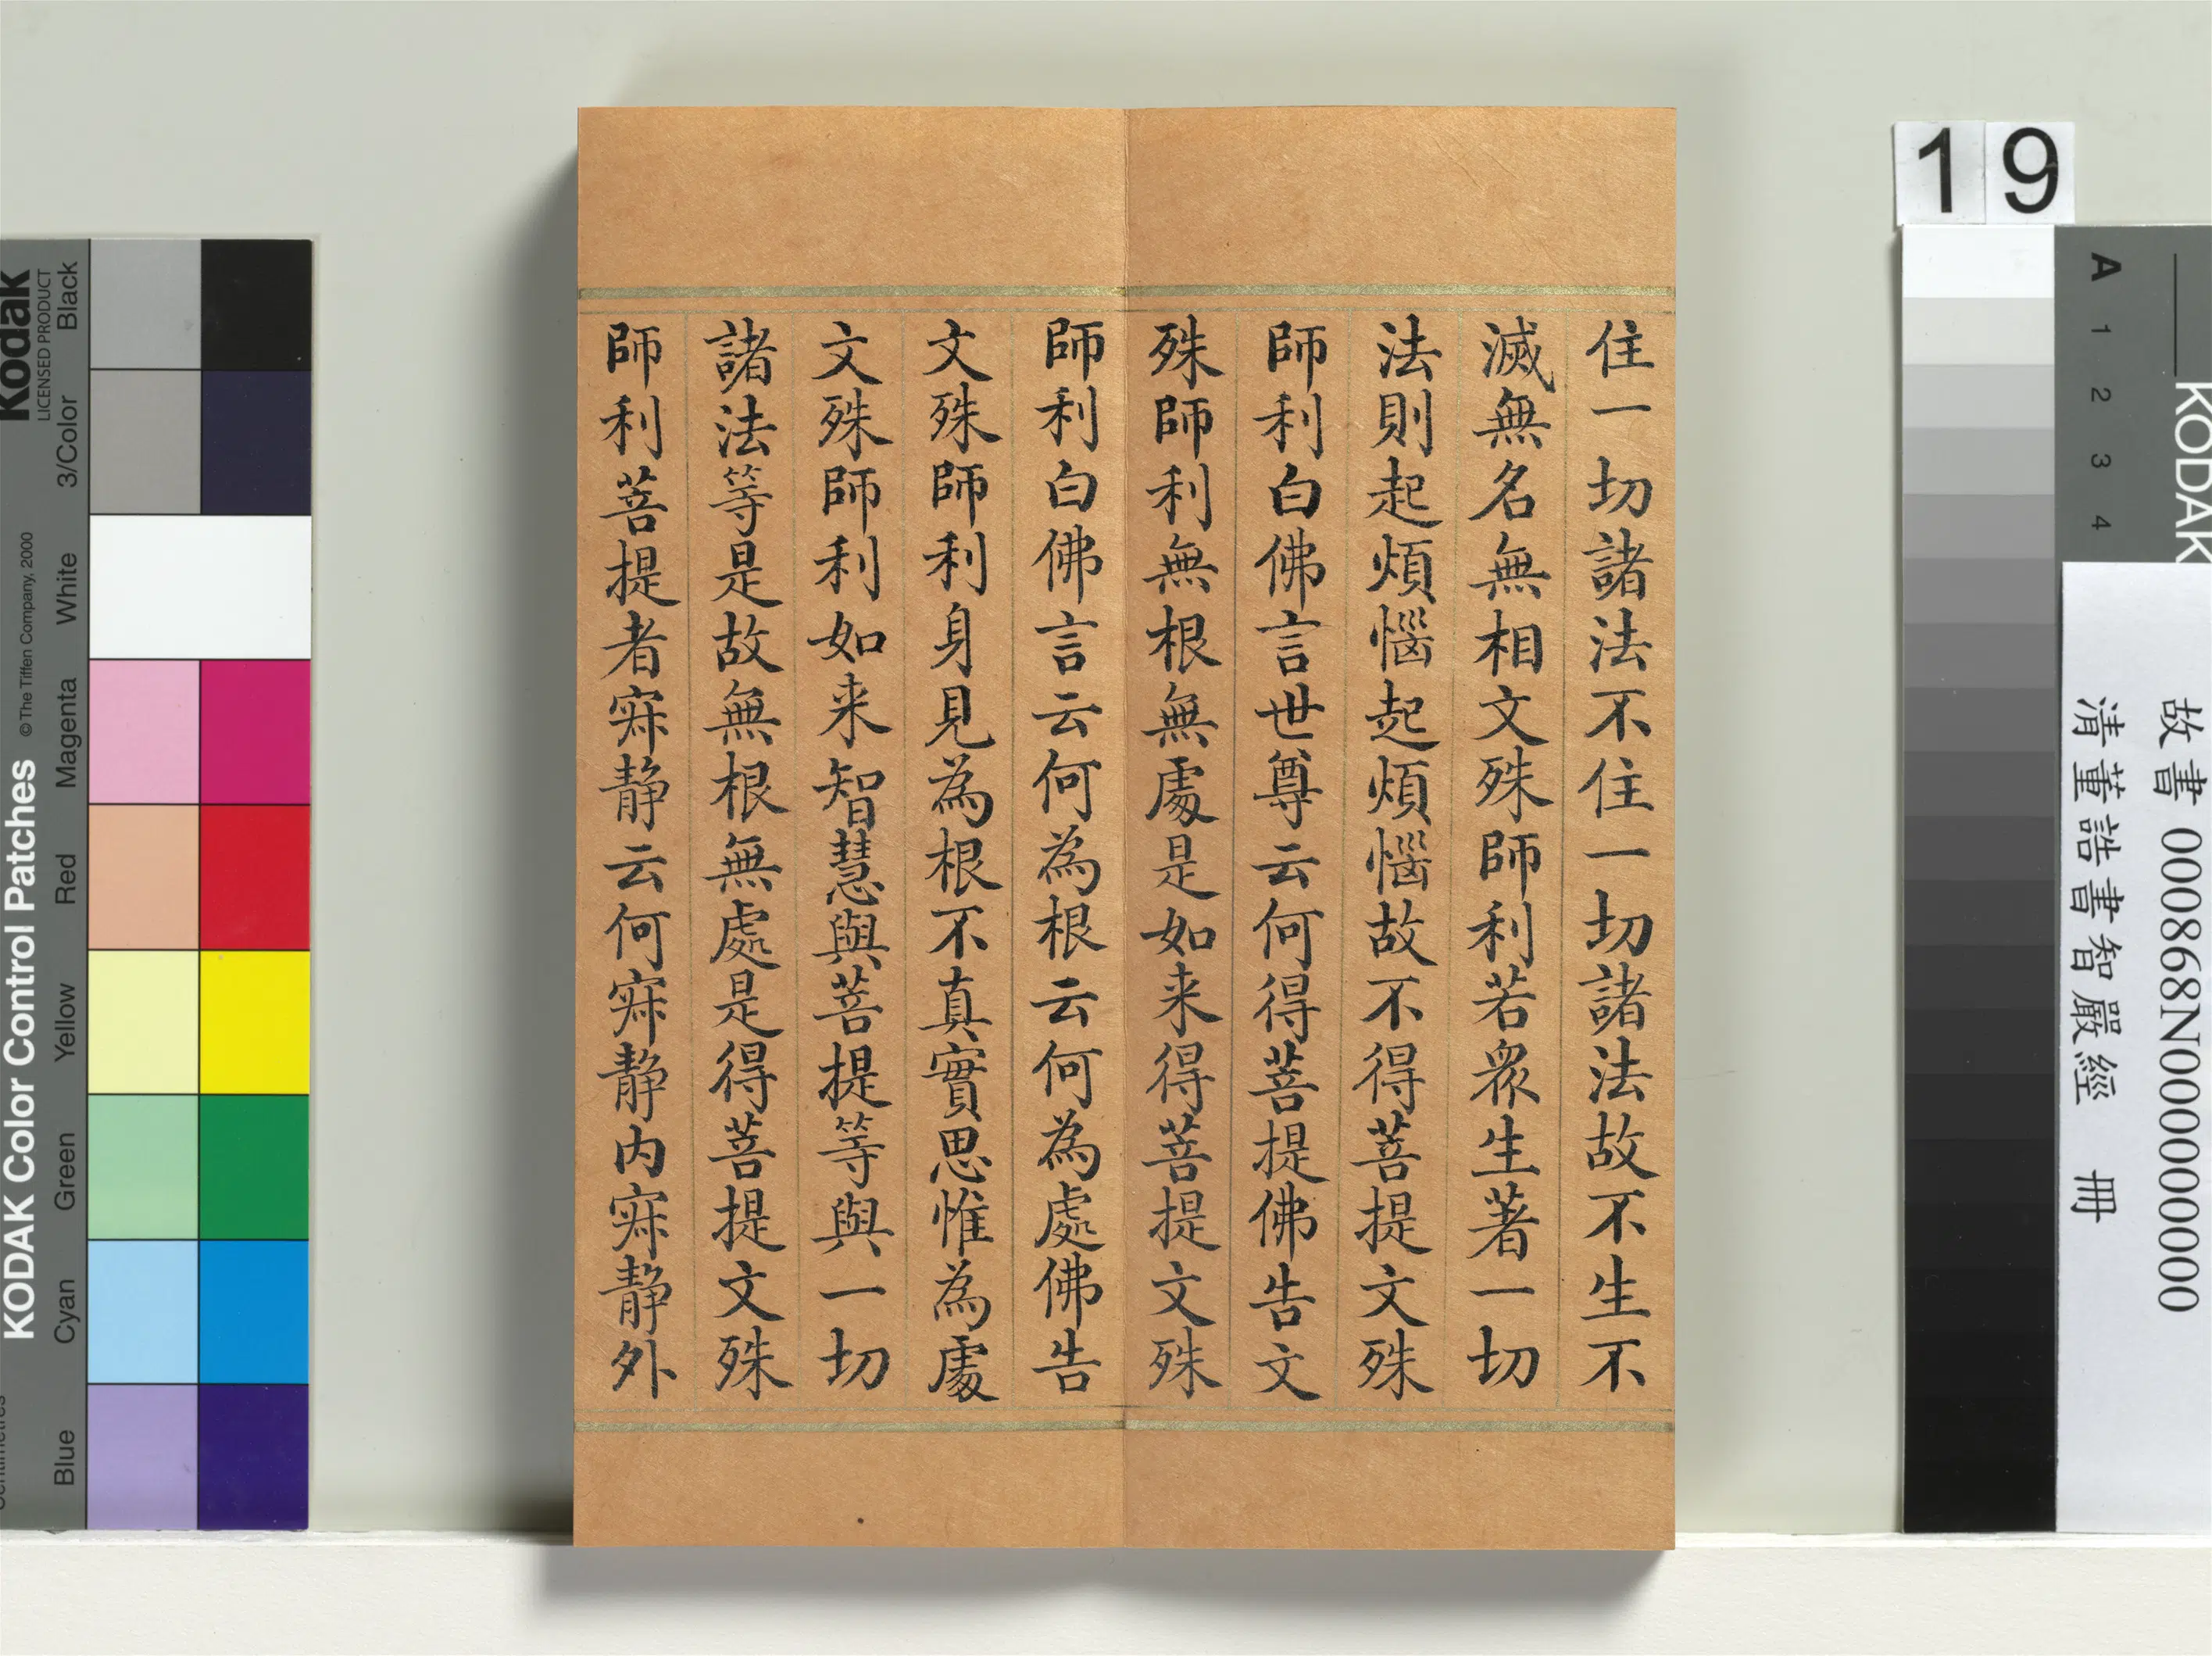 住一切諸法不住一切諸法故不生不
滅無名無相文殊師利若衆生著一切
法則起煩惱起煩惱故不得菩提文殊
師利白佛言世尊云何得菩提佛告文
殊師利無根無處是如来得菩提文殊
師利白佛言云何為根云何為處佛告
文殊師利身見為根不真實思惟為處
文殊師利如来智慧與菩提等與一切
諸法等是故無根無處是得菩提文殊
師利菩提者寂静云何寂静内寂静外
19
KODAK
A 1 2 3 4
故書 000868N000000000
清董誥書智嚴經 冊
Kodak
LICENSED PRODUCT
KODAK Color Control Patches
©The Tiffen Company, 2000
Blue Cyan Green Yellow Red Magenta White 3/Color Black